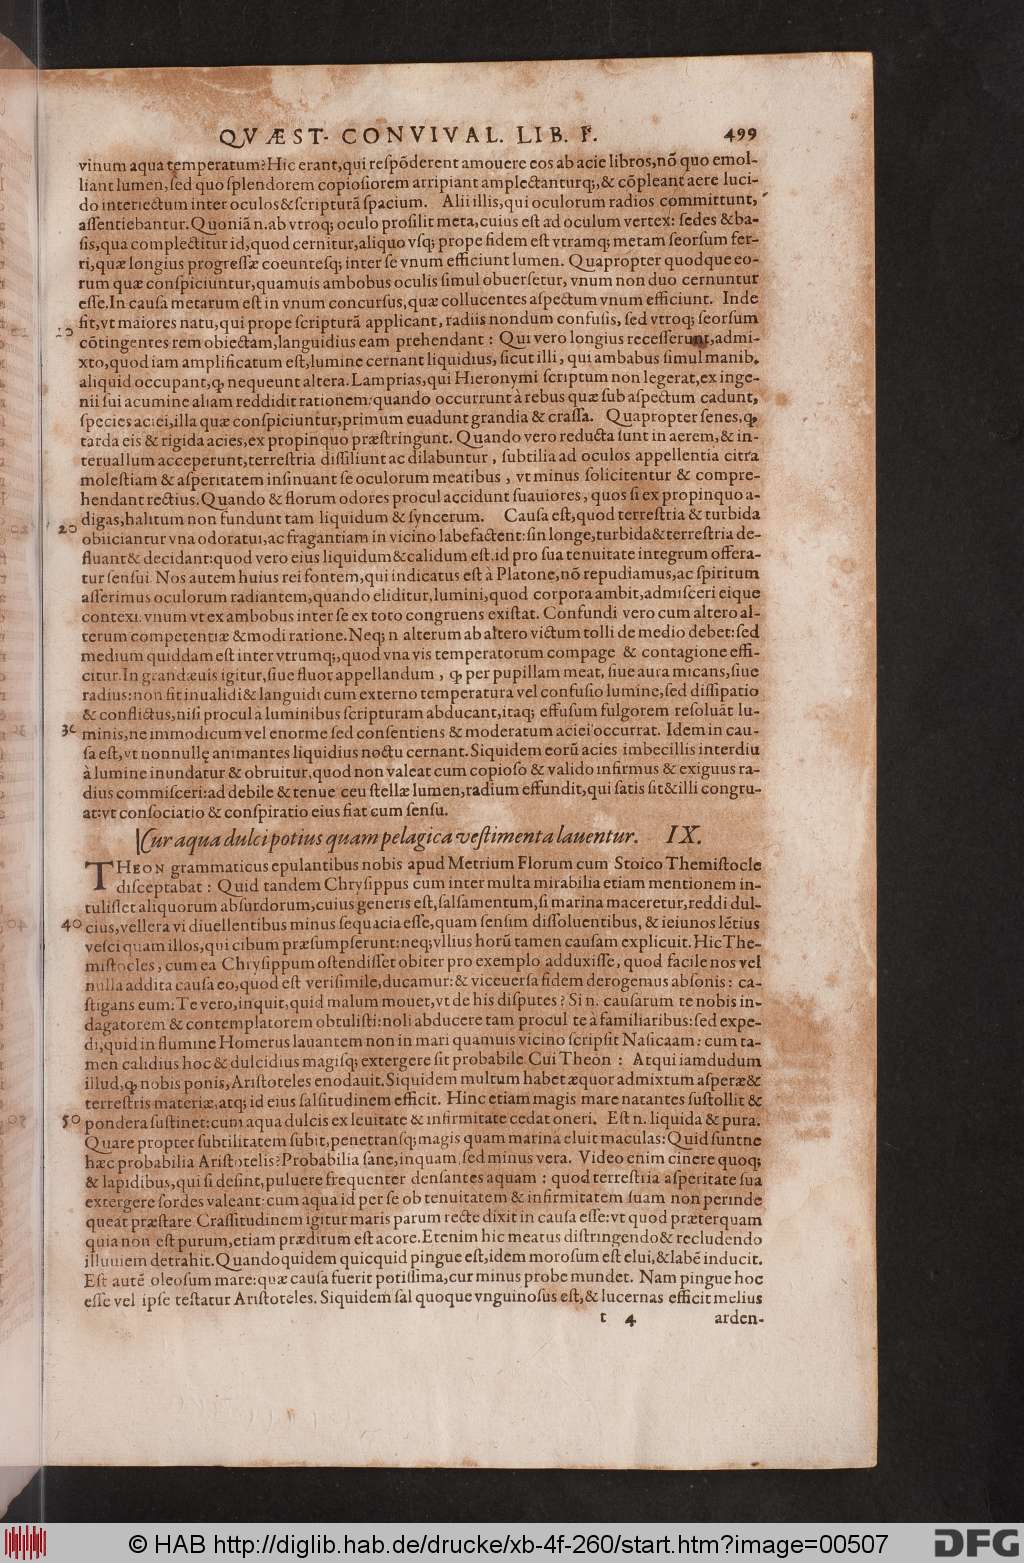 QVÆST. CONVIVAL. LIB. I. 499
vinum aqua temperatum? Hic erant, qui respõderent amouere eos ab acie libros, nõ quo emol-
liant lumen, sed quo splendorem copiosiorem arripiant amplectanturq;, & cõpleant aere luci-
do interiectum inter oculos & scripturã spacium. Alii illis, qui oculorum radios committunt,
assentiebantur. Quoniã n. ab vtroq; oculo prosilit meta, cuius est ad oculum vertex: sedes & ba-
sis, qua complectitur id, quod cernitur, aliquo vsq; prope fidem est vtramq; metam seorsum fer-
ri, quæ longius progressæ coeuntesq; inter se vnum efficiunt lumen. Quapropter quodque eo-
rum quæ conspiciuntur, quamuis ambobus oculis simul obuersetur, vnum non duo cernuntur
esse. In causa metarum est in vnum concursus, quæ collucentes aspectum vnum efficiunt. Inde
10 fit, vt maiores natu, qui prope scripturã applicant, radiis nondum confusis, sed vtroq; seorsum
cõtingentes rem obiectam, languidius eam prehendant: Qui vero longius recesserunt, admi-
xto, quod iam amplificatum est, lumine cernant liquidius, sicut illi, qui ambabus simul manib.
aliquid occupant, ꝙ nequeunt altera. Lamprias, qui Hieronymi scriptum non legerat, ex inge-
nii sui acumine aliam reddidit rationem: quando occurrunt à rebus quæ sub aspectum cadunt,
species aciei, illa quæ conspiciuntur, primum euadunt grandia & crassa. Quapropter senes, ꝙ
tarda eis & rigida acies, ex propinquo præstringunt. Quando vero reducta sunt in aerem, & in-
teruallum acceperunt, terrestria dissiliunt ac dilabuntur, subtilia ad oculos appellentia citra
molestiam & asperitatem insinuant se oculorum meatibus, vt minus solicitentur & compre-
hendant rectius. Quando & florum odores procul accidunt suauiores, quos si ex propinquo a-
20 digas, halitum non fundunt tam liquidum & syncerum. Causa est, quod terrestria & turbida
obiiciantur vna odoratui, ac fragantiam in vicino labefactent: sin longe, turbida & terrestria de-
fluant & decidant: quod vero eius liquidum & calidum est, id pro sua tenuitate integrum offera-
tur sensui. Nos autem huius rei fontem, qui indicatus est à Platone, nõ repudiamus, ac spiritum
asserimus oculorum radiantem, quando eliditur, lumini, quod corpora ambit, admisceri eique
contexi, vnum vt ex ambobus inter se ex toto congruens existat. Confundi vero cum altero al-
terum competentiæ & modi ratione. Neq; n alterum ab altero victum tolli de medio debet: sed
medium quiddam est inter vtrumq;, quod vna vis temperatorum compage & contagione effi-
citur. In grandæuis igitur, siue fluor appellandum, ꝙ per pupillam meat, siue aura micans, siue
radius: non fit inualidi & languidi cum externo temperatura vel confusio lumine, sed dissipatio
& conflictus, nisi procul à luminibus scripturam abducant, itaq; effusum fulgorem resoluãt lu-
30 minis, ne immodicum vel enorme sed consentiens & moderatum aciei occurrat. Idem in cau-
sa est, vt nonnullę animantes liquidius noctu cernant. Siquidem eorũ acies imbecillis interdiu
à lumine inundatur & obruitur, quod non valeat cum copioso & valido infirmus & exiguus ra-
dius commisceri: ad debile & tenue ceu stellæ lumen, radium effundit, qui satis sit & illi congru-
at: vt consociatio & conspiratio eius fiat cum sensu.
Cur aqua dulci potius quam pelagica vestimenta lauentur. IX.
THEON grammaticus epulantibus nobis apud Metrium Florum cum Stoico Themistocle
disceptabat: Quid tandem Chrysippus cum inter multa mirabilia etiam mentionem in-
tulisset aliquorum absurdorum, cuius generis est, salsamentum, si marina maceretur, reddi dul-
40 cius, vellera vi diuellentibus minus sequacia esse, quam sensim dissoluentibus, & ieiunos lẽtius
vesci quam illos, qui cibum præsumpserunt: neq; vllius horũ tamen causam explicuit. Hic The-
mistocles, cum ea Chrysippum ostendisset obiter pro exemplo adduxisse, quod facile nos vel
nulla addita causa eo, quod est verisimile, ducamur: & viceuersa fidem derogemus absonis: ca-
stigans eum: Te vero, inquit, quid malum mouet, vt de his disputes? Si n. causarum te nobis in-
dagatorem & contemplatorem obtulisti: noli abducere tam procul te à familiaribus: sed expe-
di, quid in flumine Homerus lauantem non in mari quamuis vicino scripsit Nasicaam: cum ta-
men calidius hoc & dulcidius magisq; extergere sit probabile. Cui Theon: Atqui iamdudum
illud, ꝙ nobis ponis, Aristoteles enodauit. Siquidem multum habet æquor admixtum asperæ &
terrestris materiæ, atq; id eius salsitudinem efficit. Hinc etiam magis mare natantes sustollit &
50 pondera sustinet: cum aqua dulcis ex leuitate & infirmitate cedat oneri. Est n. liquida & pura.
Quare propter subtilitatem subit, penetransq; magis quam marina eluit maculas: Quid suntne
hæc probabilia Aristotelis? Probabilia sane, inquam, sed minus vera. Video enim cinere quoq;
& lapidibus, qui si desint, puluere frequenter densantes aquam: quod terrestria asperitate sua
extergere sordes valeant: cum aqua id per se ob tenuitatem & infirmitatem suam non perinde
queat præstare. Crassitudinem igitur maris parum recte dixit in causa esse: vt quod præterquam
quia non est purum, etiam præditum est acore. Etenim hic meatus distringendo & recludendo
illuuiem detrahit. Quandoquidem quicquid pingue est, idem morosum est elui, & labẽ inducit.
Est autẽ oleosum mare: quæ causa fuerit potissima, cur minus probe mundet. Nam pingue hoc
esse vel ipse testatur Aristoteles. Siquidem sal quoque vnguinosus est, & lucernas efficit melius
t 4 arden-
© HAB http://diglib.hab.de/drucke/xb-4f-260/start.htm?image=00507 DFG